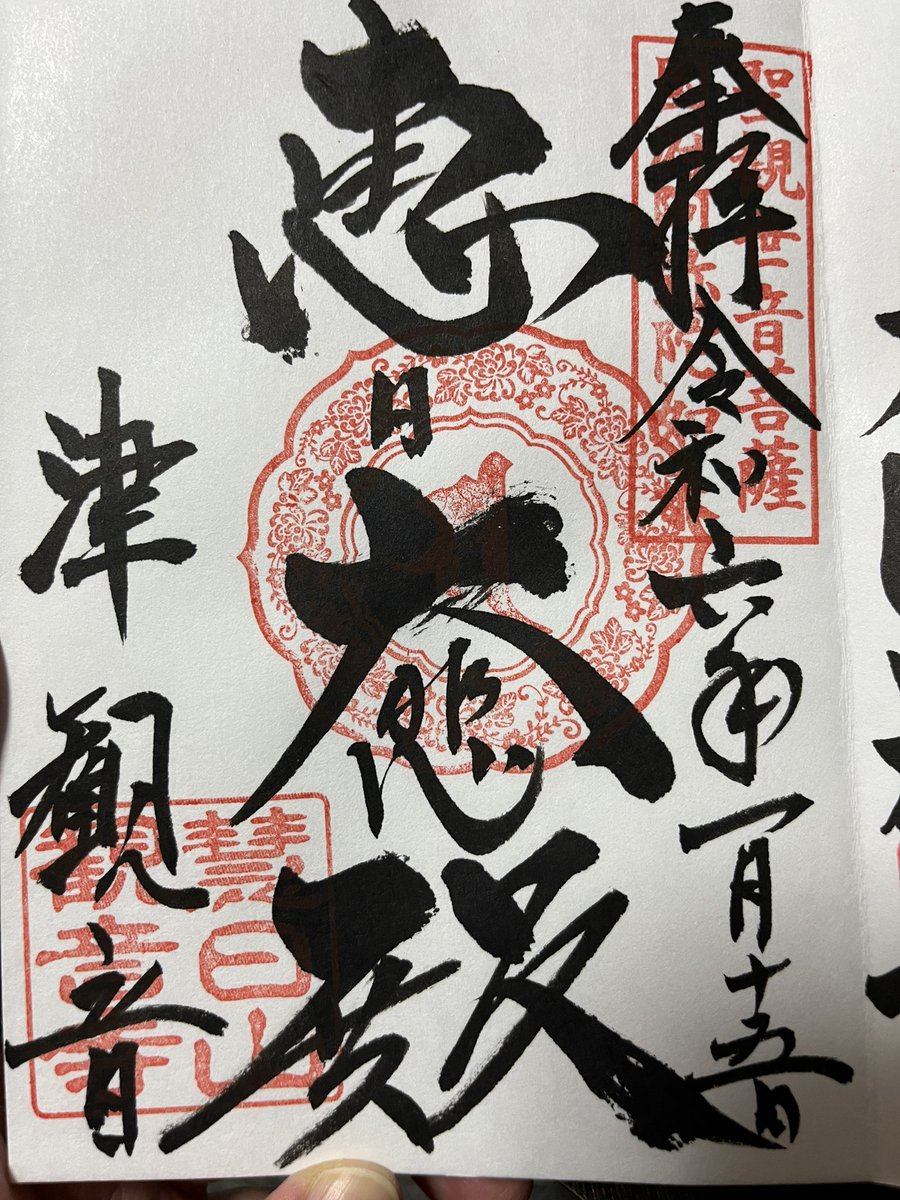 奉拝 令和六年一月十五日
聖観世音菩薩
恵日
大悲殿
津観音
慧日山
観音寺